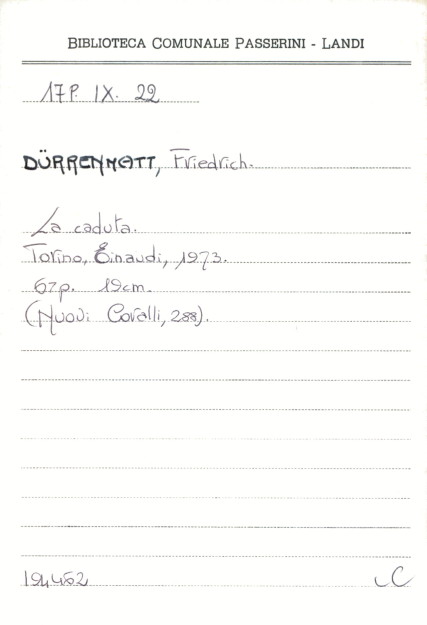 BIBLIOTECA COMUNALE PASSERINI - LANDI
17P. IX. 22
DÜRRENMATT, Friedrich.
La caduta.
Torino, Einaudi, 1973.
67p. 19cm.
(Nuovi Coralli, 288).
194462